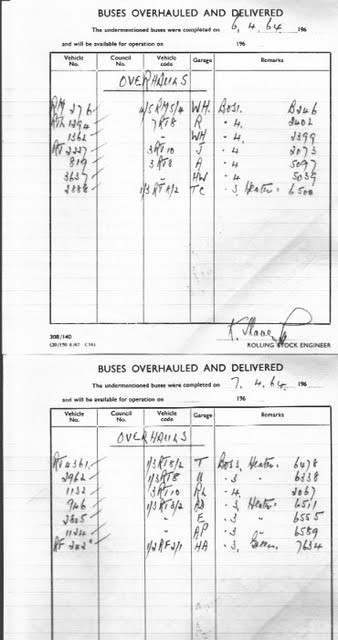 BUSES OVERHAULED AND DELIVERED
The undermentioned buses were completed on 6. 4. 64 196
and will be available for operation on 196
Vehicle No. Council No. Vehicle code Garage Remarks
OVERHAULS
RM 276 4/5 RM 5/4 WH Bos1. B246
RTL 1294 7 RT8 R " 4. 2402
1362 " WH " 4. 2399
RT 2227 3 RT10 J " 4 2073
819 3 RT8 A " 4 5097
3637 " HW " 4 5039
2888 1/3 RT8/2 TC " 3. Heater. 6500
ROLLING STOCK ENGINEER
308/140
BUSES OVERHAULED AND DELIVERED
The undermentioned buses were completed on 7. 4. 64. 196
and will be available for operation on 196
Vehicle No. Council No. Vehicle code Garage Remarks
OVERHAULS
RT 4361 1/3 RT8/2 T Bos3. Heater. 6478
2962 1/3 RT8 U " 3 6338
1132 3 RT10 RL " 4. 2067
946 1/3 RT8/2 " 3 Heater. 6511
2805 " E " 3 " 6555
1124 " AP " 3 " 6589
RF 202 1/2 RF 2/1 HA " 3. 7634